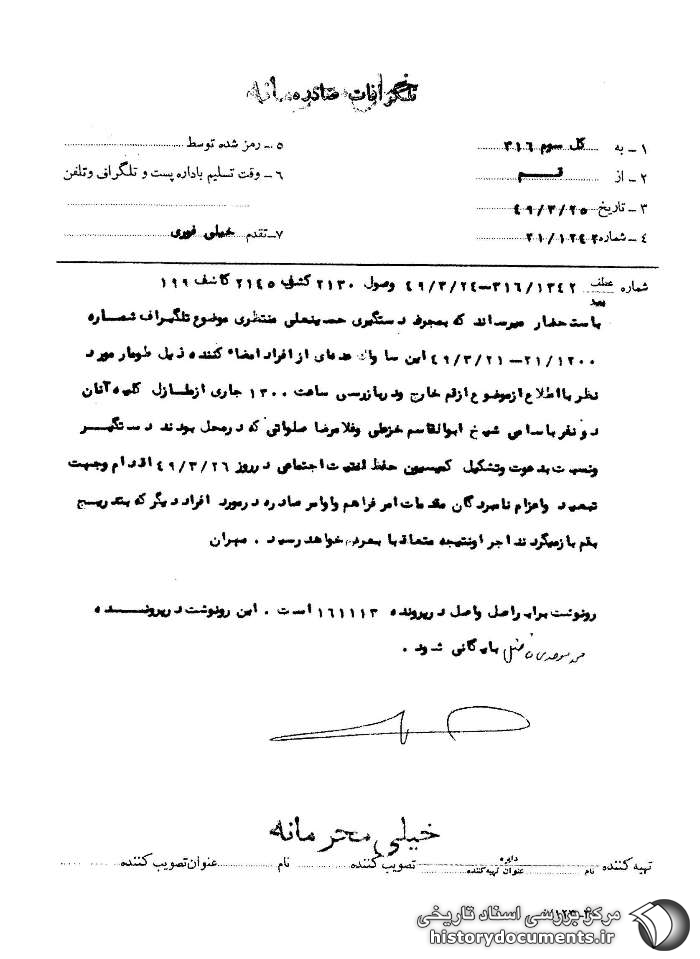 تلگرافات صادره
۱ - به کل سوم ۳۱۶
۲ - از قم
۳ - تاریخ ۴۹/۳/۲۵
۴ - شماره ۲۱/۱۲۴۲
۵ - رمز شده توسط
۶ - وقت تسلیم باداره پست و تلگراف و تلفن
۷ - تقدم خیلی فوری
شماره عطف ۳۱۶/۱۳۴۲ - ۴۹/۳/۲۴ وصول ۲۱۳۰ کشف ۲۱۴۵ کاشف ۱۹۹
پیرو
باستحضار میرساند که بمجرد دستگیری حسینعلی منتظری موضوع تلگراف شماره
۲۱/۱۲۰۰ - ۴۹/۳/۲۱ این ساواک عده‌ای از افراد امضاء کننده ذیل طومار مورد
نظر با اطلاع از موضوع از قم خارج و در بازرسی ساعت ۱۳۰۰ جاری از منازل کلیه آنان
دو نفر باسامی شیخ ابوالقاسم خزعلی و غلامرضا صلواتی که در محل بودند دستگیر
و نسبت بدعوت و تشکیل کمیسیون حفظ امنیت اجتماعی در روز ۴۹/۳/۲۶ اقدام و جهت
تبعید و اعزام نامبردگان مقدمات امر فراهم و اوامر صادره در مورد افراد دیگر که بتدریج
بقم بازمیگردند اجرا و نتیجه متعاقبا بعرض خواهد رسید . مهران
رونوشت برابر اصل و اصل در پرونده ۱۶۱۱۱۳ است . این رونوشت در پرونده
بایگانی شود .
خیلی محرمانه
تهیه کننده نام دایره عنوان تهیه کننده تصویب کننده نام عنوان تصویب کننده
مرکز بررسی اسناد تاریخی
historydocuments.ir